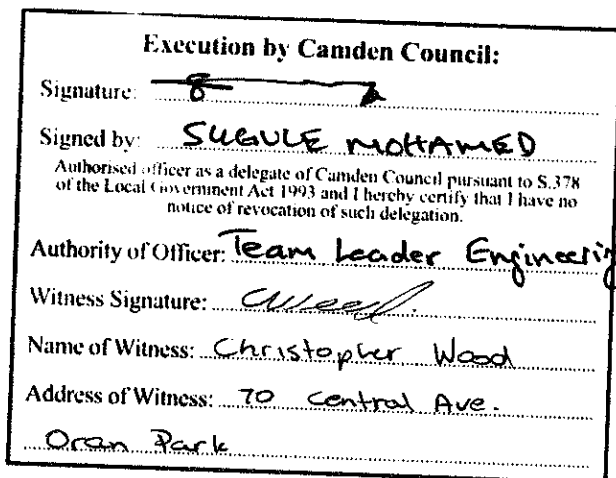 Execution by Camden Council:
Signature:
Signed by: SUGULE MOHAMED
Authorised officer as a delegate of Camden Council pursuant to S.378
of the Local Government Act 1993 and I hereby certify that I have no
notice of revocation of such delegation.
Authority of Officer: Team Leader Engineering
Witness Signature: CWood.
Name of Witness: Christopher Wood
Address of Witness: 70 Central Ave.
Oran Park